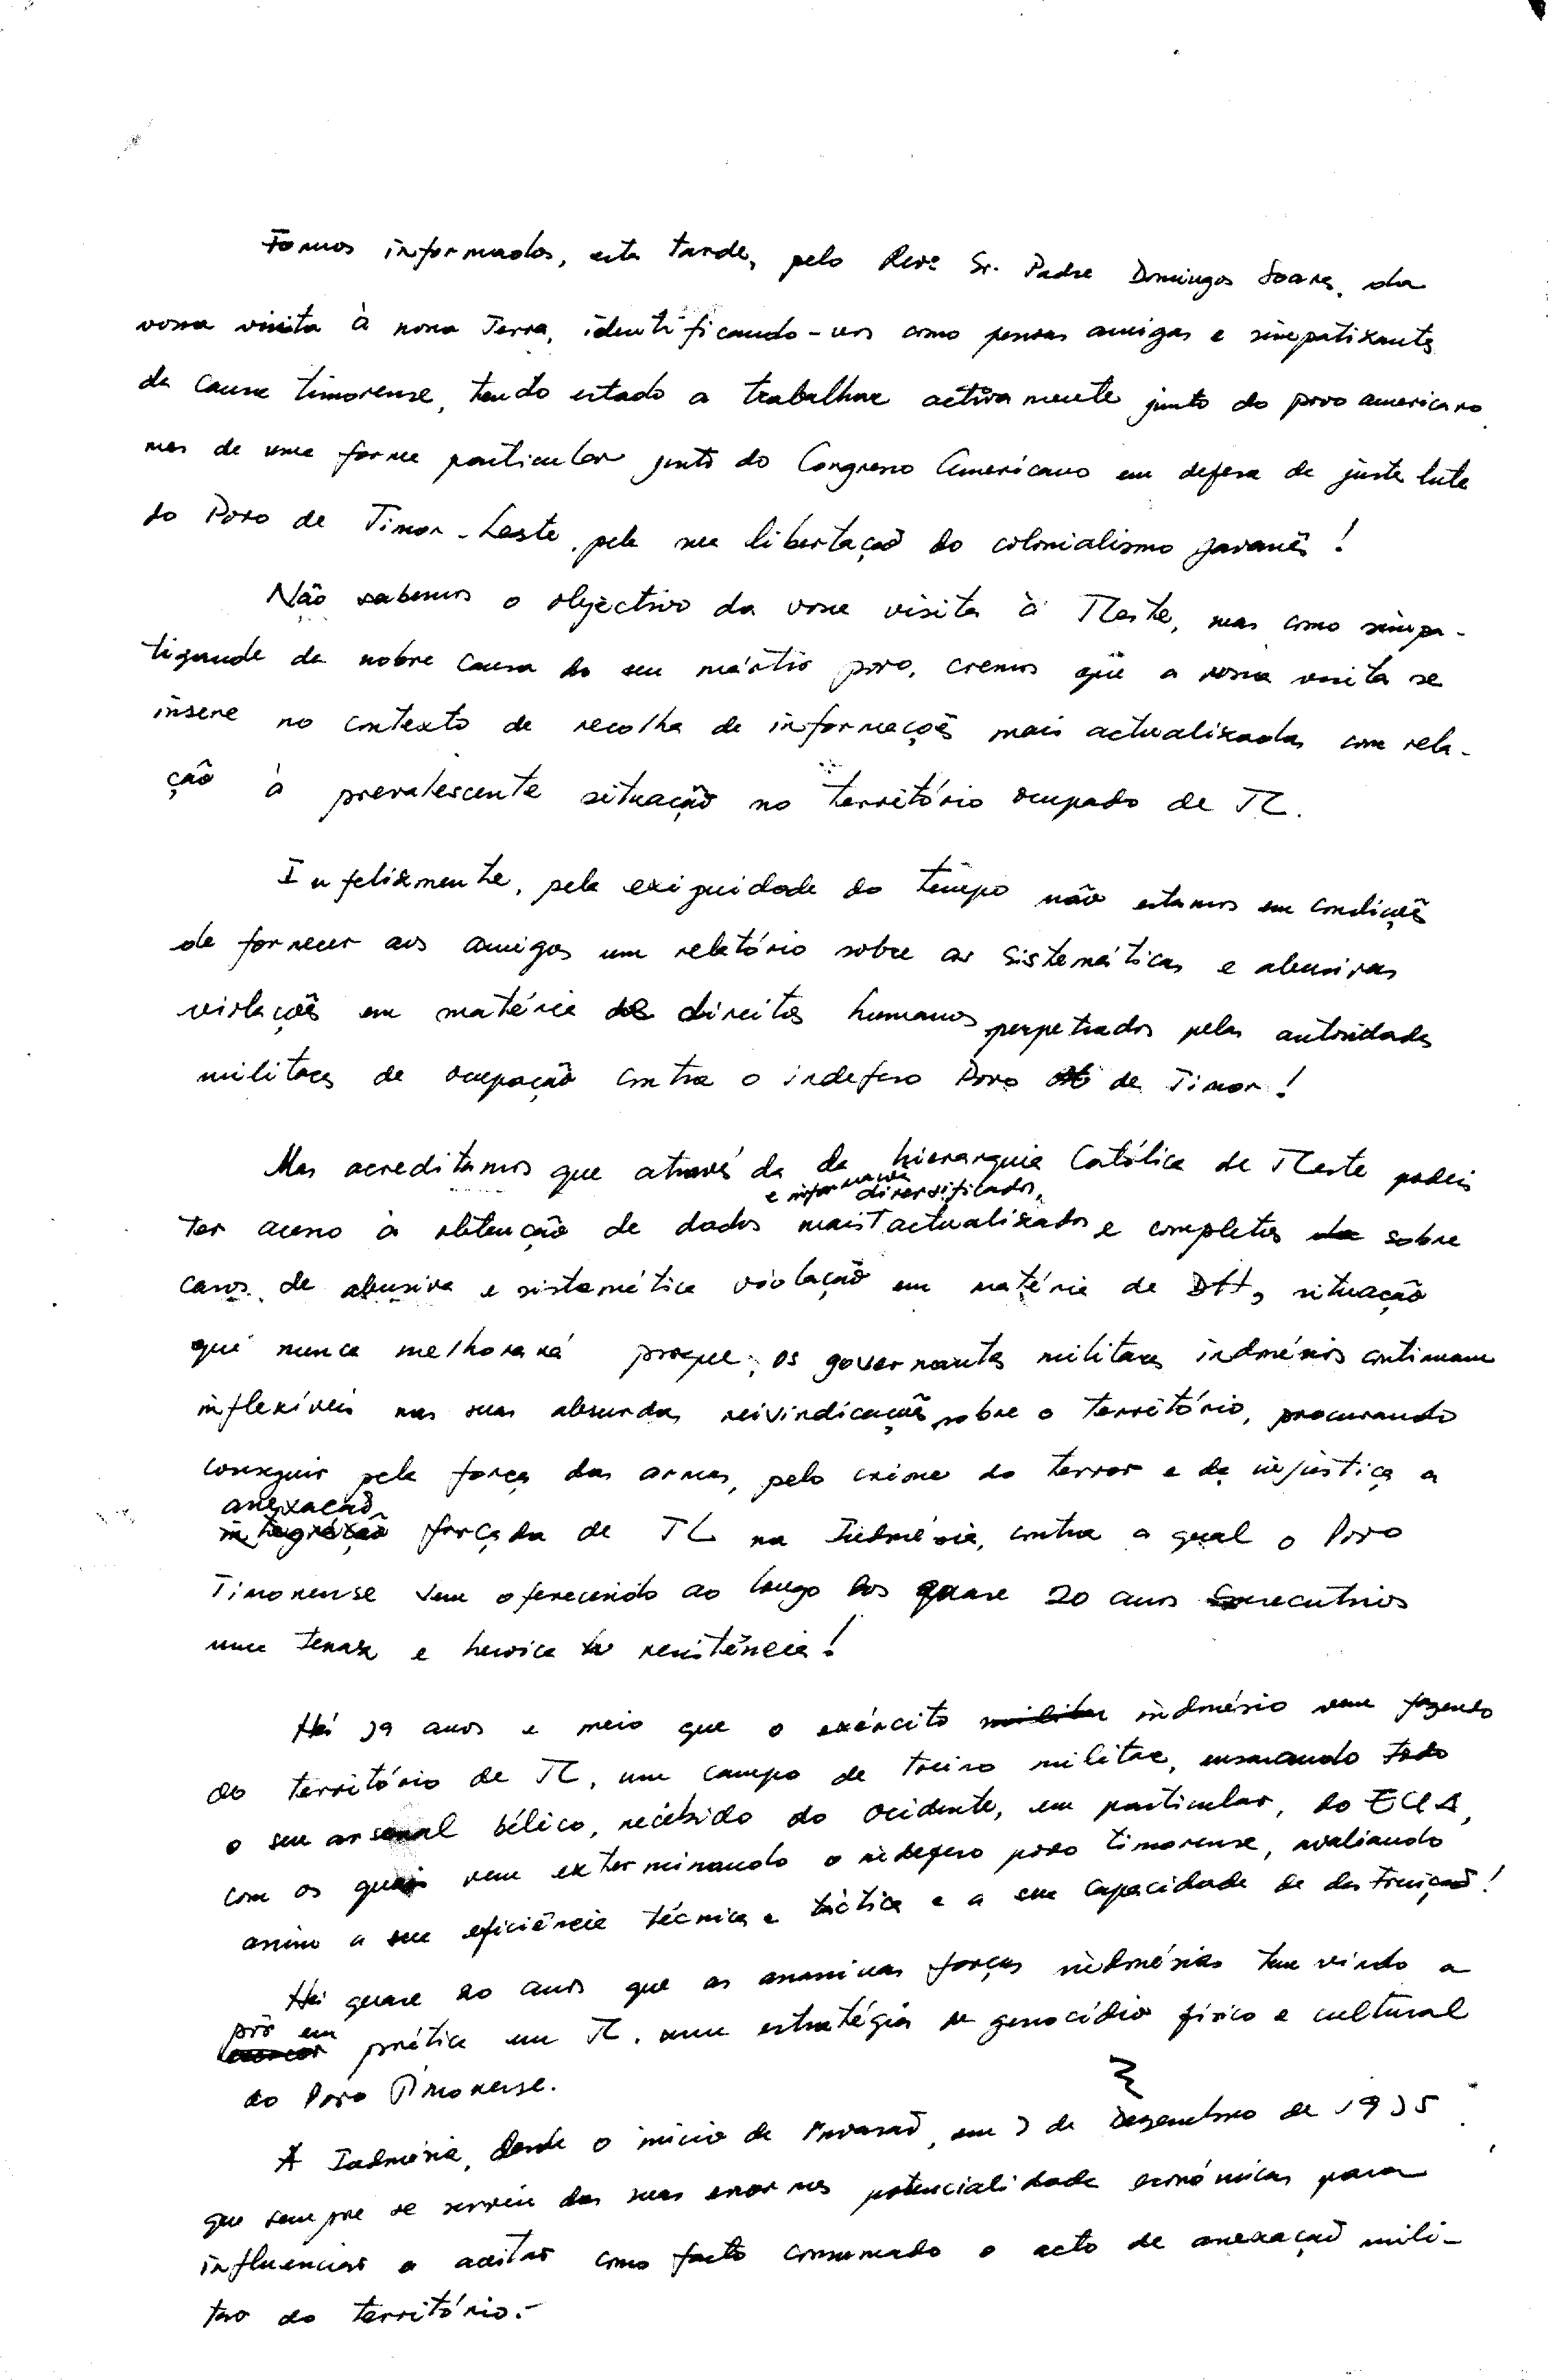 Fomos informados, esta tarde, pelo Revº Sr. Padre Domingos Soares, da
vossa visita à nossa Terra, identificando-vos como pessoas amigas e simpatizantes
da causa timorense, tendo estado a trabalhar activamente junto do povo americano
mas de uma forma particular junto do Congresso Americano em defesa da justa luta
do Povo de Timor-Leste, pela sua libertação do colonialismo javanês!
Não sabemos o objectivo da vossa visita à TLeste, mas como simpa-
tizande da nobre causa do seu mártir povo, cremos que a vossa visita se
insere no contexto de recolha de informações mais actualizadas com rela-
ção à prevalescente situação no território ocupado de TL.
Infelizmente, pela exiguidade do tempo não estamos em condições
de fornecer aos amigos um relatório sobre as sistemáticas e abusivas
violações em matéria de direitos humanos perpetrados pelas autoridades
militares de ocupação contra o indefeso Povo de Timor!
Mas acreditamos que através da da hierarquia Católica de TLeste podeis
e informações diversificados,
ter acesso à obtenção de dados mais actualizados e completos da sobre
casos de abusiva e sistemática violação em matéria de DH, situação
que nunca melhorará porque, os governantes militares indonésios continuam
inflexíveis nas suas absurdas reivindicações sobre o território, procurando
conseguir pela força das armas, pelo crime do terror e da injustiça a
anexação
integração forçada de TL na Indonésia, contra a qual o Povo
Timorense vem oferecendo ao longo dos quase 20 anos consecutivos
uma tenaz e heroica resistência!
Há 19 anos e meio que o exército militar indonésio vem fazendo
do território de TL, um campo de treino militar, ensaiando todo
o seu arsenal bélico, recebido do ocidente, em particular, do EUA,
com os quais vem exterminando o indefeso povo timorense, avaliando
assim a sua eficiência técnica e táctica e a sua capacidade de destruição!
Há quase 20 anos que as assassinas forças indonésias tem vindo a
pôr em
prática em TL. uma estratégia de genocídio físico e cultural
do Povo Timorense.
A Indonésia, desde o início de Invasão, em 7 de Dezembro de 1975
que sempre se serviu das suas enormes potencialidade económicas para
influenciar a aceitar como facto consumado o acto de anexação mili-
tar do território.-